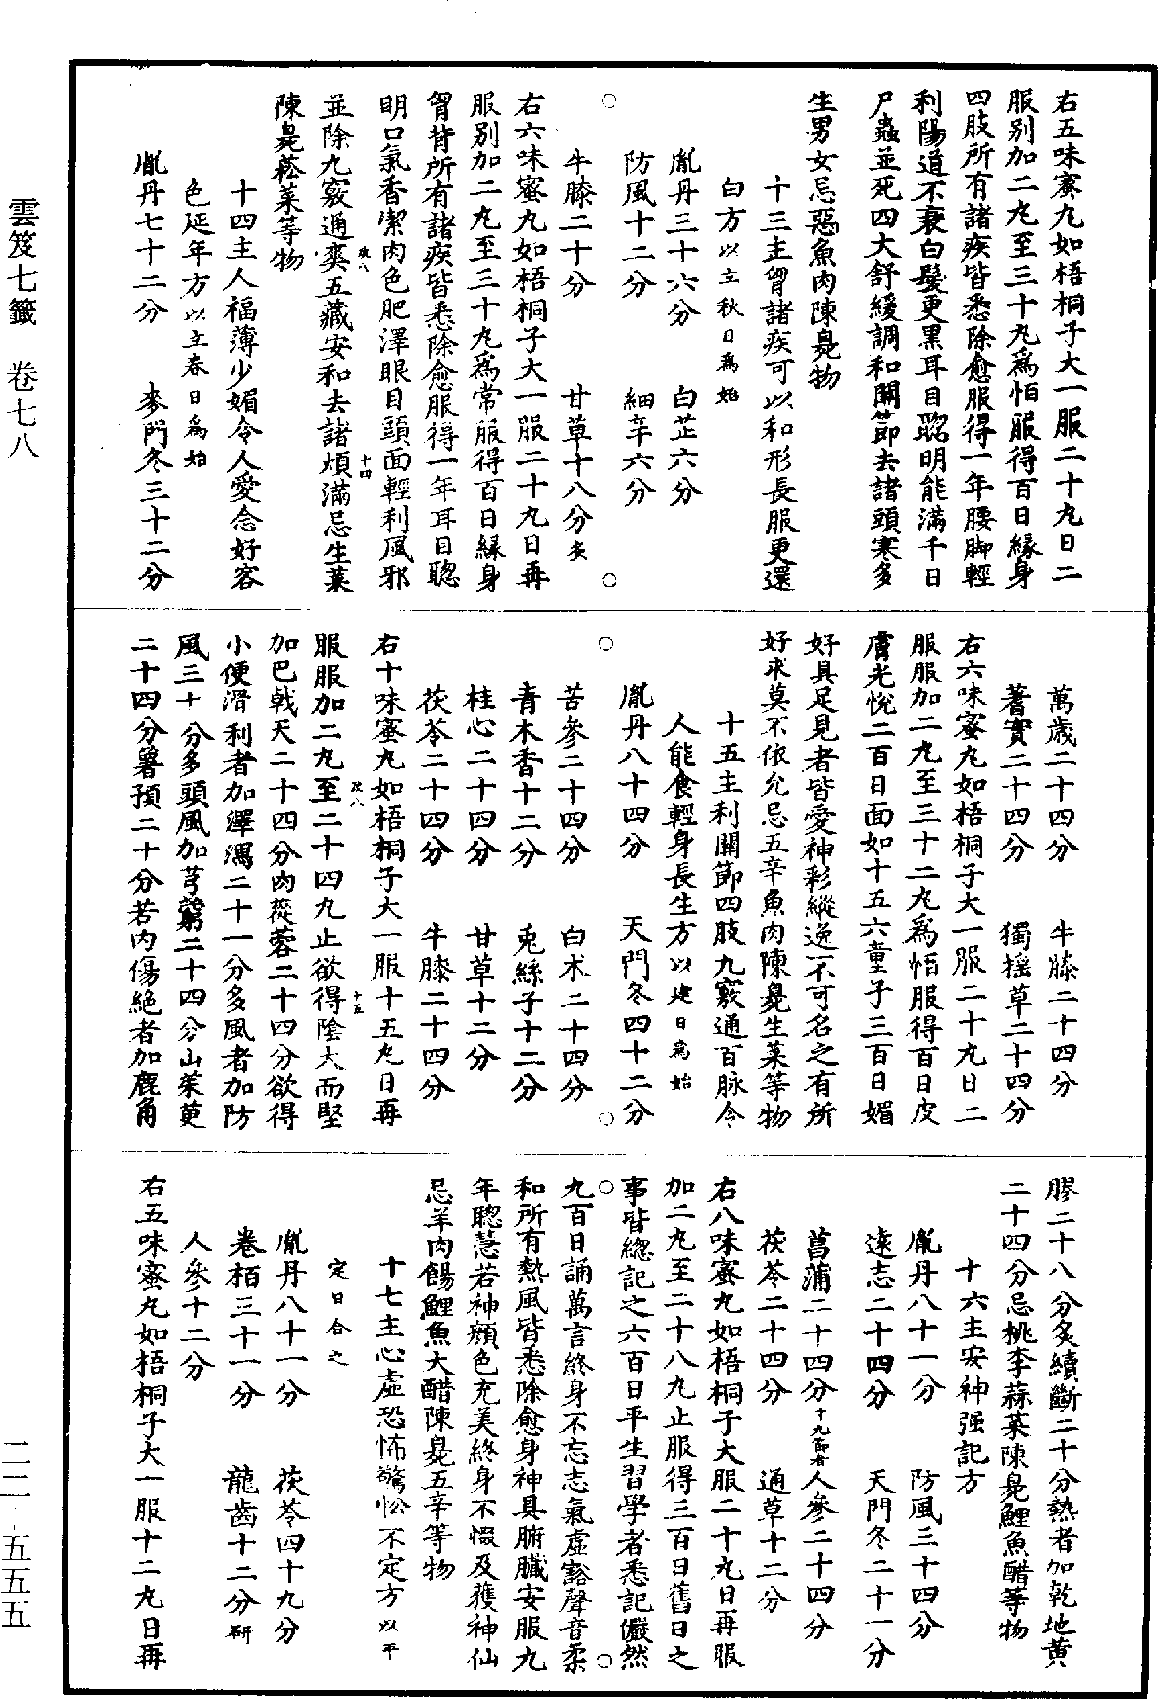 雲笈七籤　卷七八
二二・五五五
右五味蜜丸如梧桐子大一服二十丸日二
服別加二丸至三十丸爲恒服得百日緣身
四肢所有諸疾皆悉除愈服得一年腰脚輕
利陽道不衰白髮更黑耳目聰明能滿千日
尸蟲並死四大舒緩調和關節去諸頭寒多
生男女忌惡魚肉陳臭物
十三主胷諸疾可以和形長服更還
白方以立秋日爲始
胤丹三十六分　白芷六分
防風十二分　細辛六分
牛膝二十分　甘草十八分炙
右六味蜜丸如梧桐子大一服二十丸日再
服別加二丸至三十丸爲常服得百日緣身
胷背所有諸疾皆悉除愈服得一年耳目聰
明口氣香潔肉色肥澤眼目頭面輕利風邪
並除九竅通爽五藏安和去諸煩滿忌生菜
政八　十四
陳臭菘菜等物
十四主人福薄少媚令人愛念好容
色延年方以立春日爲始
胤丹七十二分　麥門冬三十二分
萬歲二十四分　牛膝二十四分
蓍實二十四分　獨摇草二十四分
右六味蜜丸如梧桐子大一服二十丸日二
服服加二丸至三十二丸爲恒服得百日皮
膚光悅二百日面如十五六童子三百日媚
好具足見者皆愛神彩縱逸不可名之有所
好求莫不依允忌五辛魚肉陳臭生菜等物
十五主利關節四肢九竅通百脉令
人能食輕身長生方以建日爲始
胤丹八十四分　天門冬四十二分
苦參二十四分　白术二十四分
青木香十二分　兎絲子十二分
桂心二十四分　甘草十二分
茯苓二十四分　牛膝二十四分
右十味蜜丸如梧桐子大一服十五丸日再
服服加二丸至二十四丸止欲得陰大而堅
政八　十五
加巴戟天二十四分肉蓯蓉二十四分欲得
小便滑利者加澤瀉二十一分多風者加防
風三十分多頭風加芎藭二十四分山茱萸
二十四分薯預二十分若内傷絶者加鹿角
膠二十八分炙續斷二十分熱者加乾地黄
二十四分忌桃李蒜菜陳臭鯉魚醋等物
十六主安神强記方
胤丹八十一分　防風三十四分
遠志二十四分　天門冬二十一分
菖蒲二十四分十九節者　人參二十四分
茯苓二十四分　通草十二分
右八味蜜丸如梧桐子大服二十丸日再服
加二丸至二十八丸止服得三百日舊日之
事皆總記之六百日平生習學者悉記儼然
九百日誦萬言終身不忘志氣虛豁聲音柔
和所有熱風皆悉除愈身神具腑臟安服九
年聰慧若神顏色充美終身不惙及獲神仙
忌羊肉餳鯉魚大醋陳臭五辛等物
十七主心虛恐怖驚忪不定方以平
定日合之
胤丹八十一分　茯苓四十九分
卷栢三十一分　龍齒十二分研
人參十二分
右五味蜜丸如梧桐子大一服十二丸日再